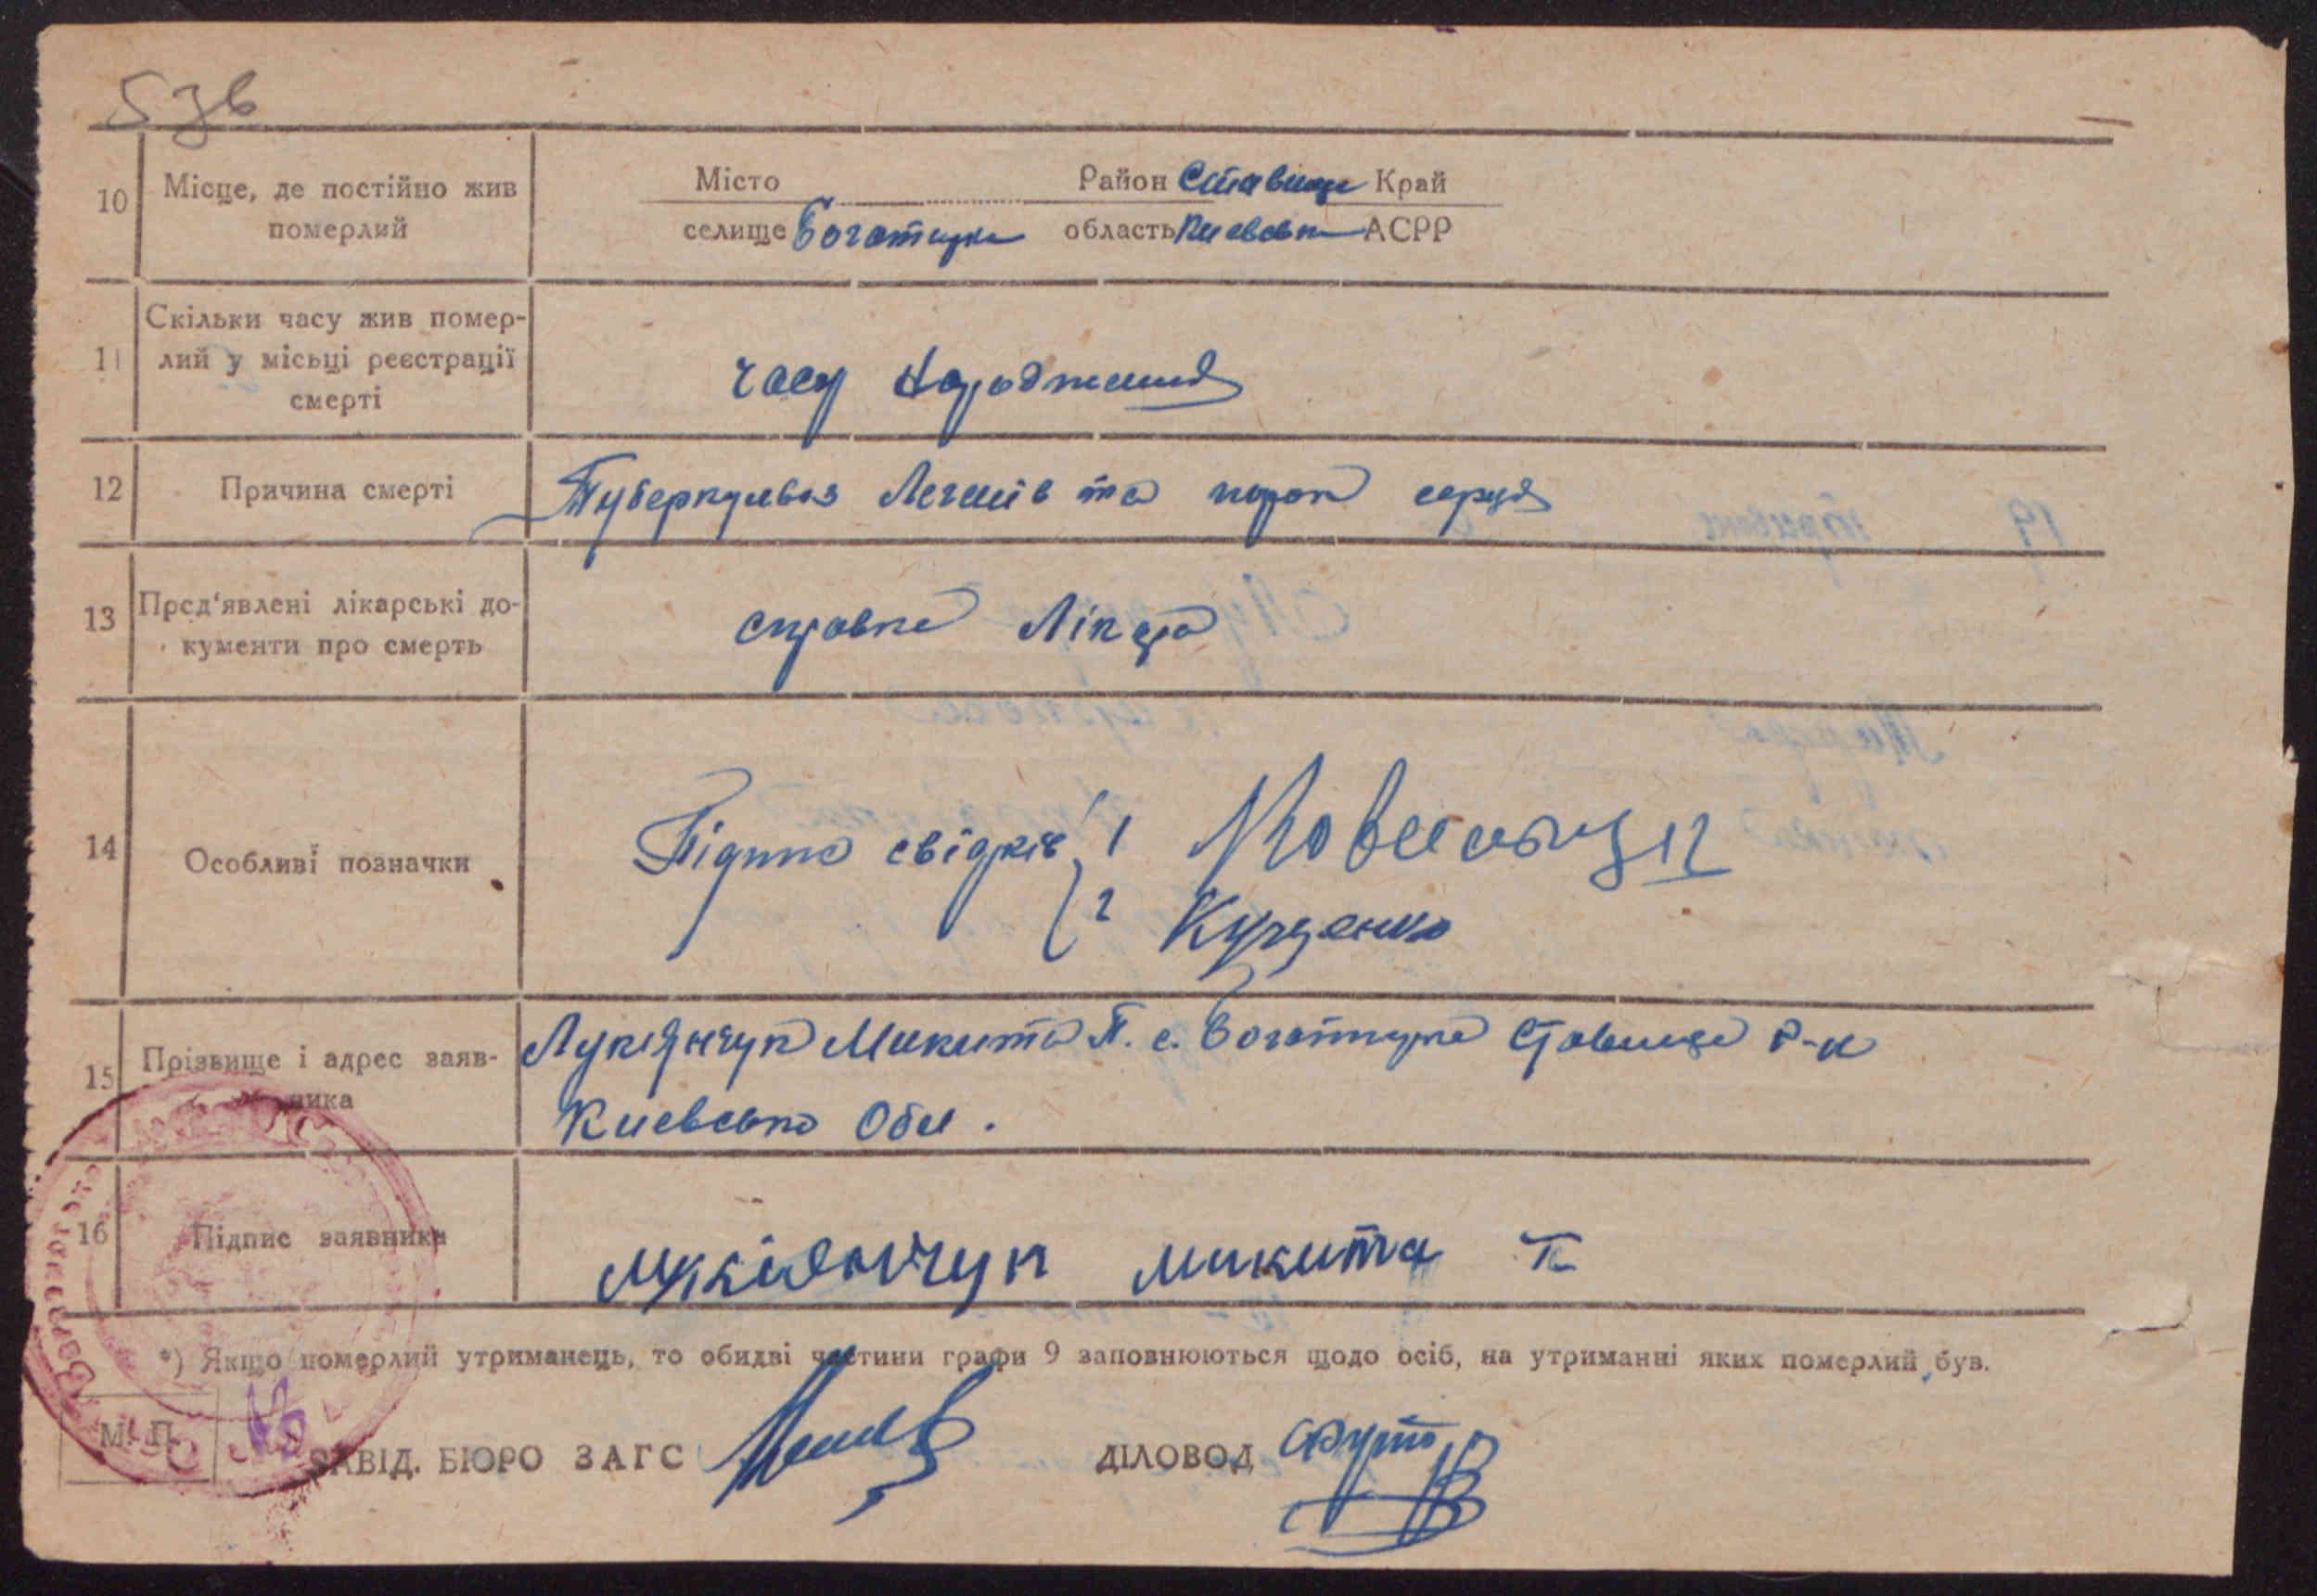 53в
10 Місце, де постійно жив померлий
Місто Район Ставище Край
селище Богатирка область Киевська АСРР
11 Скільки часу жив помер-
лий у місьці реєстрації
смерті
часу народження
12 Причина смерті Туберкульоз Легенів та порок серця
13 Пред'явлені лікарські до-
кументи про смерть
справка Лікаря
14 Особливі позначки
Підпис свідків 1
2 Куценко
15 Прізвище і адрес заяв-
ника
Лукіянчук Микита П. с. Богатирка Ставище р-н
Киевсько Обл.
16 Підпис заявника
Лукіянчук микита П
*) Якщо померлий утриманець, то обидві частини графи 9 заповнюються щодо осіб, на утриманні яких померлий був.
М. П.
ЗАВІД. БЮРО ЗАГС ДІЛОВОД